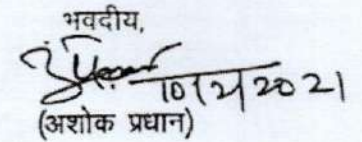 भवदीय,
10/2/2021
(अशोक प्रधान)